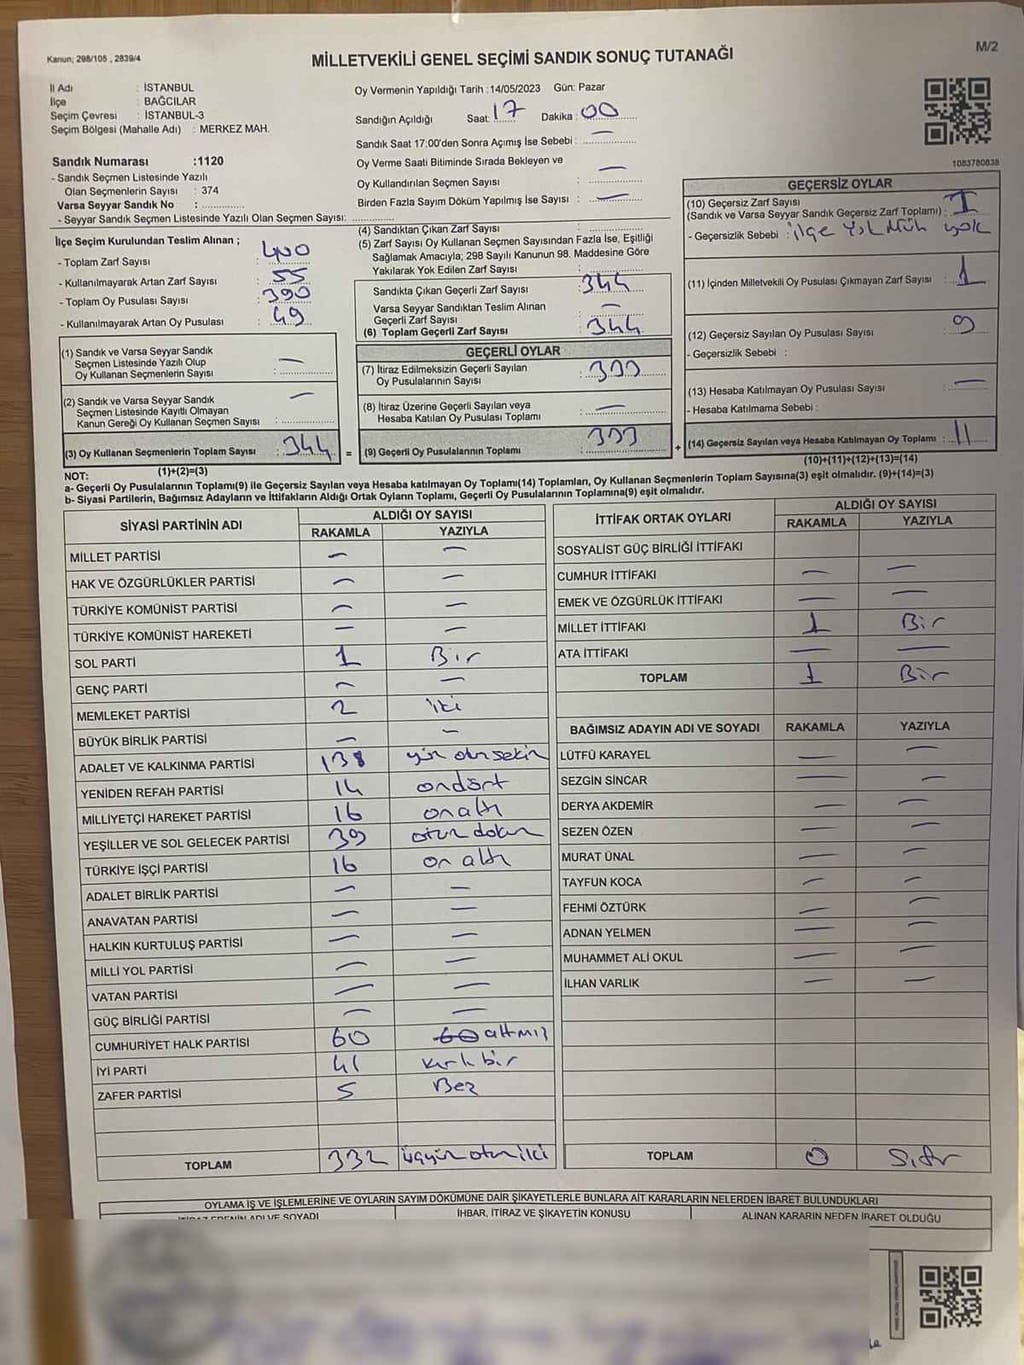 Kanun; 298/105 , 2839/4
MİLLETVEKİLİ GENEL SEÇİMİ SANDIK SONUÇ TUTANAĞI
M/2
İl Adı : İSTANBUL
İlçe : BAĞCILAR
Seçim Çevresi : İSTANBUL-3
Seçim Bölgesi (Mahalle Adı) : MERKEZ MAH.
Oy Vermenin Yapıldığı Tarih : 14/05/2023 Gün: Pazar
Sandığın Açıldığı Saat: 17 Dakika : 00
Sandık Saat 17:00'den Sonra Açımış İse Sebebi : —
Oy Verme Saati Bitiminde Sırada Bekleyen ve
Oy Kullandırılan Seçmen Sayısı : —
Birden Fazla Sayım Döküm Yapılmış İse Sayısı : —
1083780838
Sandık Numarası :1120
- Sandık Seçmen Listesinde Yazılı
Olan Seçmenlerin Sayısı : 374
Varsa Seyyar Sandık No :
- Seyyar Sandık Seçmen Listesinde Yazılı Olan Seçmen Sayısı:
İlçe Seçim Kurulundan Teslim Alınan ;
- Toplam Zarf Sayısı : 400
- Kullanılmayarak Artan Zarf Sayısı : 55
- Toplam Oy Pusulası Sayısı : 390
- Kullanılmayarak Artan Oy Pusulası : 49
(1) Sandık ve Varsa Seyyar Sandık
Seçmen Listesinde Yazılı Olup
Oy Kullanan Seçmenlerin Sayısı : —
(2) Sandık ve Varsa Seyyar Sandık
Seçmen Listesinde Kayıtlı Olmayan
Kanun Gereği Oy Kullanan Seçmen Sayısı : —
(3) Oy Kullanan Seçmenlerin Toplam Sayısı : 344
(1)+(2)=(3)
(4) Sandıktan Çıkan Zarf Sayısı :
(5) Zarf Sayısı Oy Kullanan Seçmen Sayısından Fazla İse, Eşitliği
Sağlamak Amacıyla; 298 Sayılı Kanunun 98. Maddesine Göre
Yakılarak Yok Edilen Zarf Sayısı :
Sandıkta Çıkan Geçerli Zarf Sayısı : 344
Varsa Seyyar Sandıktan Teslim Alınan
Geçerli Zarf Sayısı : —
(6) Toplam Geçerli Zarf Sayısı : 344
GEÇERLİ OYLAR
(7) İtiraz Edilmeksizin Geçerli Sayılan
Oy Pusulalarının Sayısı : 333
(8) İtiraz Üzerine Geçerli Sayılan veya
Hesaba Katılan Oy Pusulası Toplamı : —
= (9) Geçerli Oy Pusulalarının Toplamı : 333
GEÇERSİZ OYLAR
(10) Geçersiz Zarf Sayısı
(Sandık ve Varsa Seyyar Sandık Geçersiz Zarf Toplamı) : 1
- Geçersizlik Sebebi : ilçe Ysk Müh yok
(11) İçinden Milletvekili Oy Pusulası Çıkmayan Zarf Sayısı : 1
(12) Geçersiz Sayılan Oy Pusulası Sayısı : 9
- Geçersizlik Sebebi :
(13) Hesaba Katılmayan Oy Pusulası Sayısı : —
- Hesaba Katılmama Sebebi :
+ (14) Geçersiz Sayılan veya Hesaba Katılmayan Oy Toplamı : 11
(10)+(11)+(12)+(13)=(14)
NOT:
a- Geçerli Oy Pusulalarının Toplamı(9) ile Geçersiz Sayılan veya Hesaba katılmayan Oy Toplamı(14) Toplamları, Oy Kullanan Seçmenlerin Toplam Sayısına(3) eşit olmalıdır. (9)+(14)=(3)
b- Siyasi Partilerin, Bağımsız Adayların ve İttifakların Aldığı Ortak Oyların Toplamı, Geçerli Oy Pusulalarının Toplamına(9) eşit olmalıdır.
SİYASİ PARTİNİN ADI ALDIĞI OY SAYISI
RAKAMLA YAZIYLA
MİLLET PARTİSİ — —
HAK VE ÖZGÜRLÜKLER PARTİSİ — —
TÜRKİYE KOMÜNİST PARTİSİ — —
TÜRKİYE KOMÜNİST HAREKETİ — —
SOL PARTİ 1 Bir
GENÇ PARTİ — —
MEMLEKET PARTİSİ 2 iki
BÜYÜK BİRLİK PARTİSİ — —
ADALET VE KALKINMA PARTİSİ 138 yüz otuz sekiz
YENİDEN REFAH PARTİSİ 14 ondört
MİLLİYETÇİ HAREKET PARTİSİ 16 on altı
YEŞİLLER VE SOL GELECEK PARTİSİ 39 otuz dokuz
TÜRKİYE İŞÇİ PARTİSİ 16 on altı
ADALET BİRLİK PARTİSİ — —
ANAVATAN PARTİSİ — —
HALKIN KURTULUŞ PARTİSİ — —
MİLLİ YOL PARTİSİ — —
VATAN PARTİSİ — —
GÜÇ BİRLİĞİ PARTİSİ — —
CUMHURİYET HALK PARTİSİ 60 60 altmış
İYİ PARTİ 41 kırk bir
ZAFER PARTİSİ 5 Beş
TOPLAM 332 üçyüz otuz iki
İTTİFAK ORTAK OYLARI ALDIĞI OY SAYISI
RAKAMLA YAZIYLA
SOSYALİST GÜÇ BİRLİĞİ İTTİFAKI
CUMHUR İTTİFAKI — —
EMEK VE ÖZGÜRLÜK İTTİFAKI — —
MİLLET İTTİFAKI 1 Bir
ATA İTTİFAKI — —
TOPLAM 1 Bir
BAĞIMSIZ ADAYIN ADI VE SOYADI RAKAMLA YAZIYLA
LÜTFÜ KARAYEL — —
SEZGİN SİNCAR — —
DERYA AKDEMİR — —
SEZEN ÖZEN — —
MURAT ÜNAL — —
TAYFUN KOCA — —
FEHMİ ÖZTÜRK — —
ADNAN YELMEN — —
MUHAMMET ALİ OKUL — —
İLHAN VARLIK — —
TOPLAM 0 Sıfır
OYLAMA İŞ VE İŞLEMLERİNE VE OYLARIN SAYIM DÖKÜMÜNE DAİR ŞİKAYETLERLE BUNLARA AİT KARARLARIN NELERDEN İBARET BULUNDUKLARI
İTİRAZ EDENİN ADI VE SOYADI İHBAR, İTİRAZ VE ŞİKAYETİN KONUSU ALINAN KARARIN NEDEN İBARET OLDUĞU